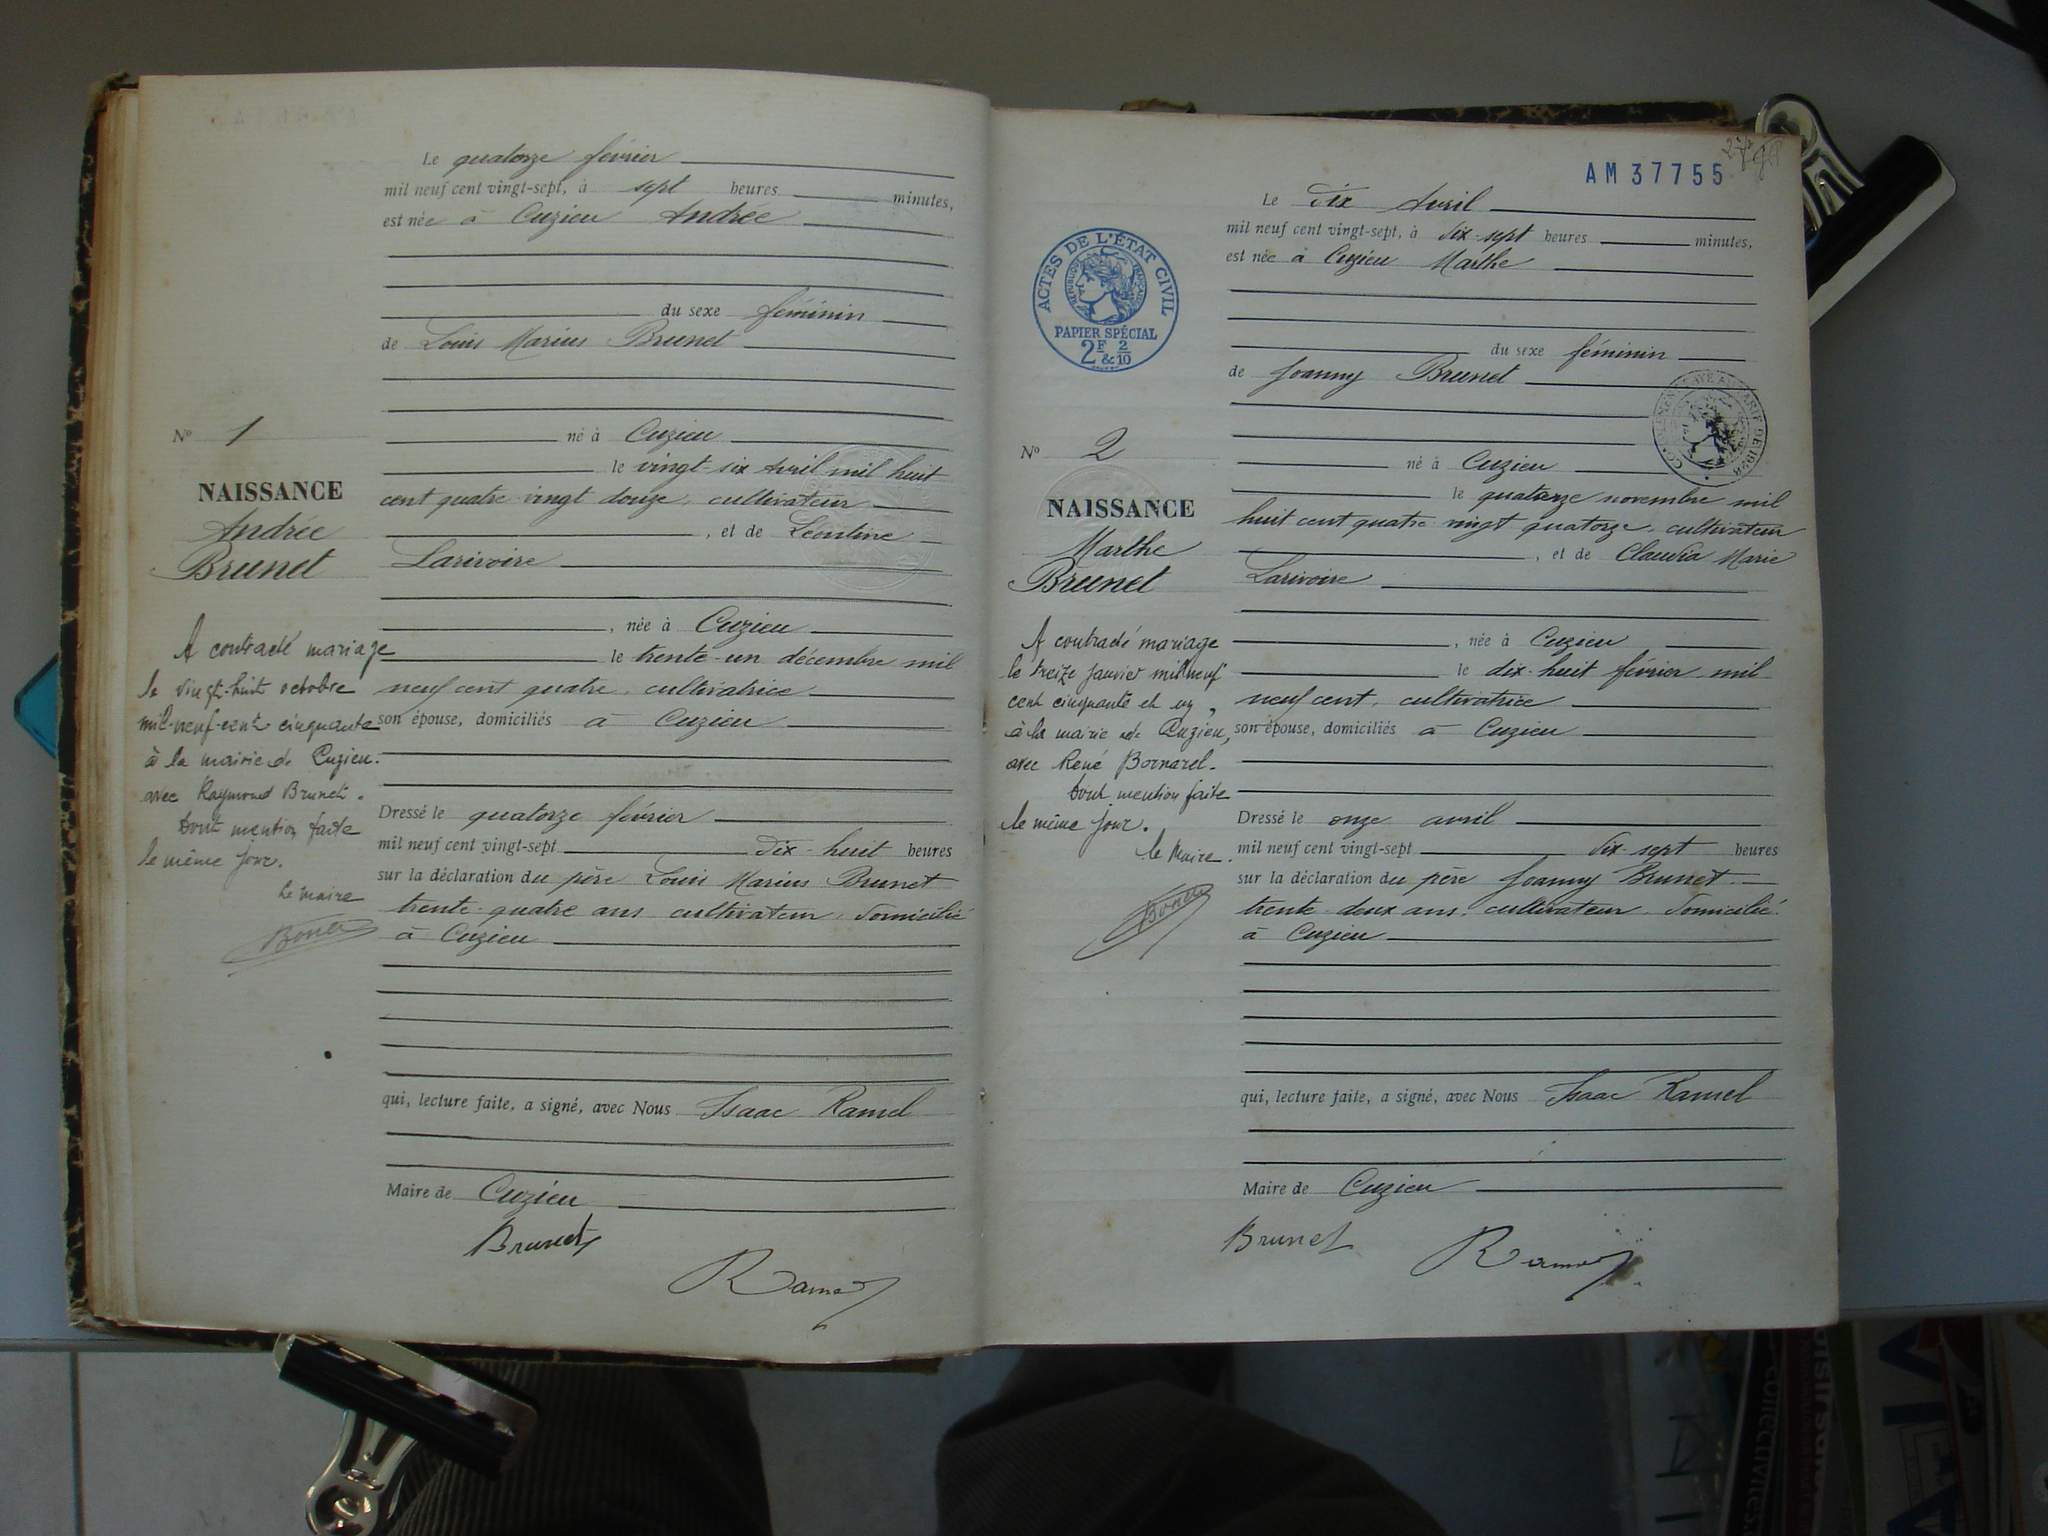 Le quatorze février
mil neuf cent vingt-sept, à sept heures minutes,
est née à Cuzieu Andrée
du sexe féminin
de Louis Marius Brunet
né à Cuzieu
le vingt-six Avril mil huit
cent quatre-vingt douze, cultivateur
, et de Léontine
Larivoire
, née à Cuzieu
le trente-un décembre mil
neuf cent quatre, cultivatrice
son épouse, domiciliés à Cuzieu
Dressé le quatorze février
mil neuf cent vingt-sept dix-huit heures
sur la déclaration du père Louis Marius Brunet
trente-quatre ans cultivateur, domicilié
à Cuzieu
qui, lecture faite, a signé, avec Nous Isaac Ramel
Maire de Cuzieu
Brunet
Ramel
N° 1
NAISSANCE
Andrée
Brunet
A contracté mariage
le vingt-huit octobre
mil-neuf-cent cinquante
à la mairie de Cuzieu.
avec Raymond Brunet.
Dont mention faite
le même jour.
Le maire
AM37755
Le Dix Avril
mil neuf cent vingt-sept, à dix-sept heures minutes,
est née à Cuzieu Marthe
du sexe féminin
de Joanny Brunet
né à Cuzieu
le quatorze novembre mil
huit cent quatre-vingt quatorze, cultivateur
, et de Claudia Marie
Larivoire
, née à Cuzieu
le dix-huit février mil
neuf cent, cultivatrice
son épouse, domiciliés à Cuzieu
Dressé le onze avril
mil neuf cent vingt-sept dix-sept heures
sur la déclaration du père Joanny Brunet
trente-deux ans, cultivateur, domicilié
à Cuzieu
qui, lecture faite, a signé, avec Nous Isaac Ramel
Maire de Cuzieu
Brunet
Ramel
ACTES DE L'ÉTAT CIVIL
RÉPUBLIQUE FRANÇAISE
PAPIER SPÉCIAL
2F & 2/10
N° 2
NAISSANCE
Marthe
Brunet
A contracté mariage
le treize janvier mil neuf
cent cinquante et un,
à la mairie de Cuzieu,
avec René Bornarel.
Dont mention faite
le même jour.
le Maire.